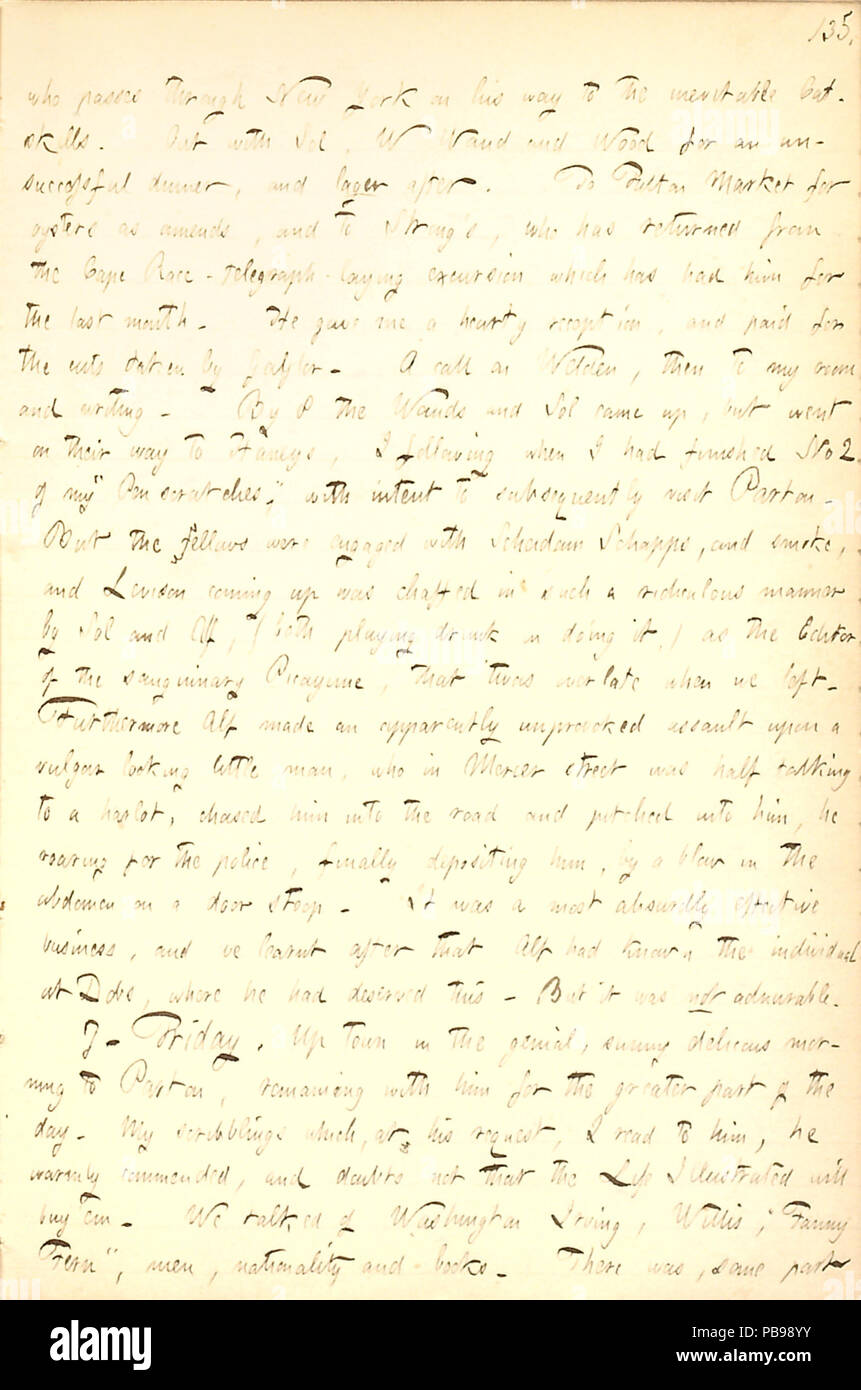 135.
who passes through New York on his way to the inevitable Cat-
skills. Out with Sol, W Waud and Wood for an un-
successful dinner, and lager after. To Fulton Market for
oysters as amends, and to Strong's, who has returned from
the Cape Race-telegraph-laying excursion which has had him for
the last month. He gave me a hearty reception, and paid for
the cuts taken by Gayler. A call on Welden, then to my room
and writing. By 8 the Wauds and Sol came up, but went
on their way to Haneys, I following when I had finished No 2
of my "Pen scratches," with intent to subsequently visit Parton.
But the fellows were engaged with Scheidam Schapps, and smoke,
and Levison coming up was chaffed in such a ridiculous manner
by Sol and Alf, (both playing drunk in doing it,) as the Editor
of the sanguinary Picayune, that 'twas over late when we left.
Furthermore Alf made an apparently unprovoked assault upon a
vulgar looking little man, who in Mercer street was half talking
to a harlot, chased him into the road and pitched into him, he
roaring for the police, finally depositing him, by a blow in the
abdomen on a door stoop. It was a most absurdly effective
business, and we learnt after that Alf had known the individual
at Dobs, where he had deserved this. But it was not admirable.
7. Friday. Up town in the genial, sunny delicious mor-
ning to Parton, remaining with him for the greater part of the
day. My scribblings which, at his request, I read to him, he
warmly commended, and doubts not that the Life Illustrated will
buy 'em. We talked of Washington Irving, Willis, "Fanny
Fern", men, nationality and books. There was, some part
alamy
Image ID: PB98YY
www.alamy.com